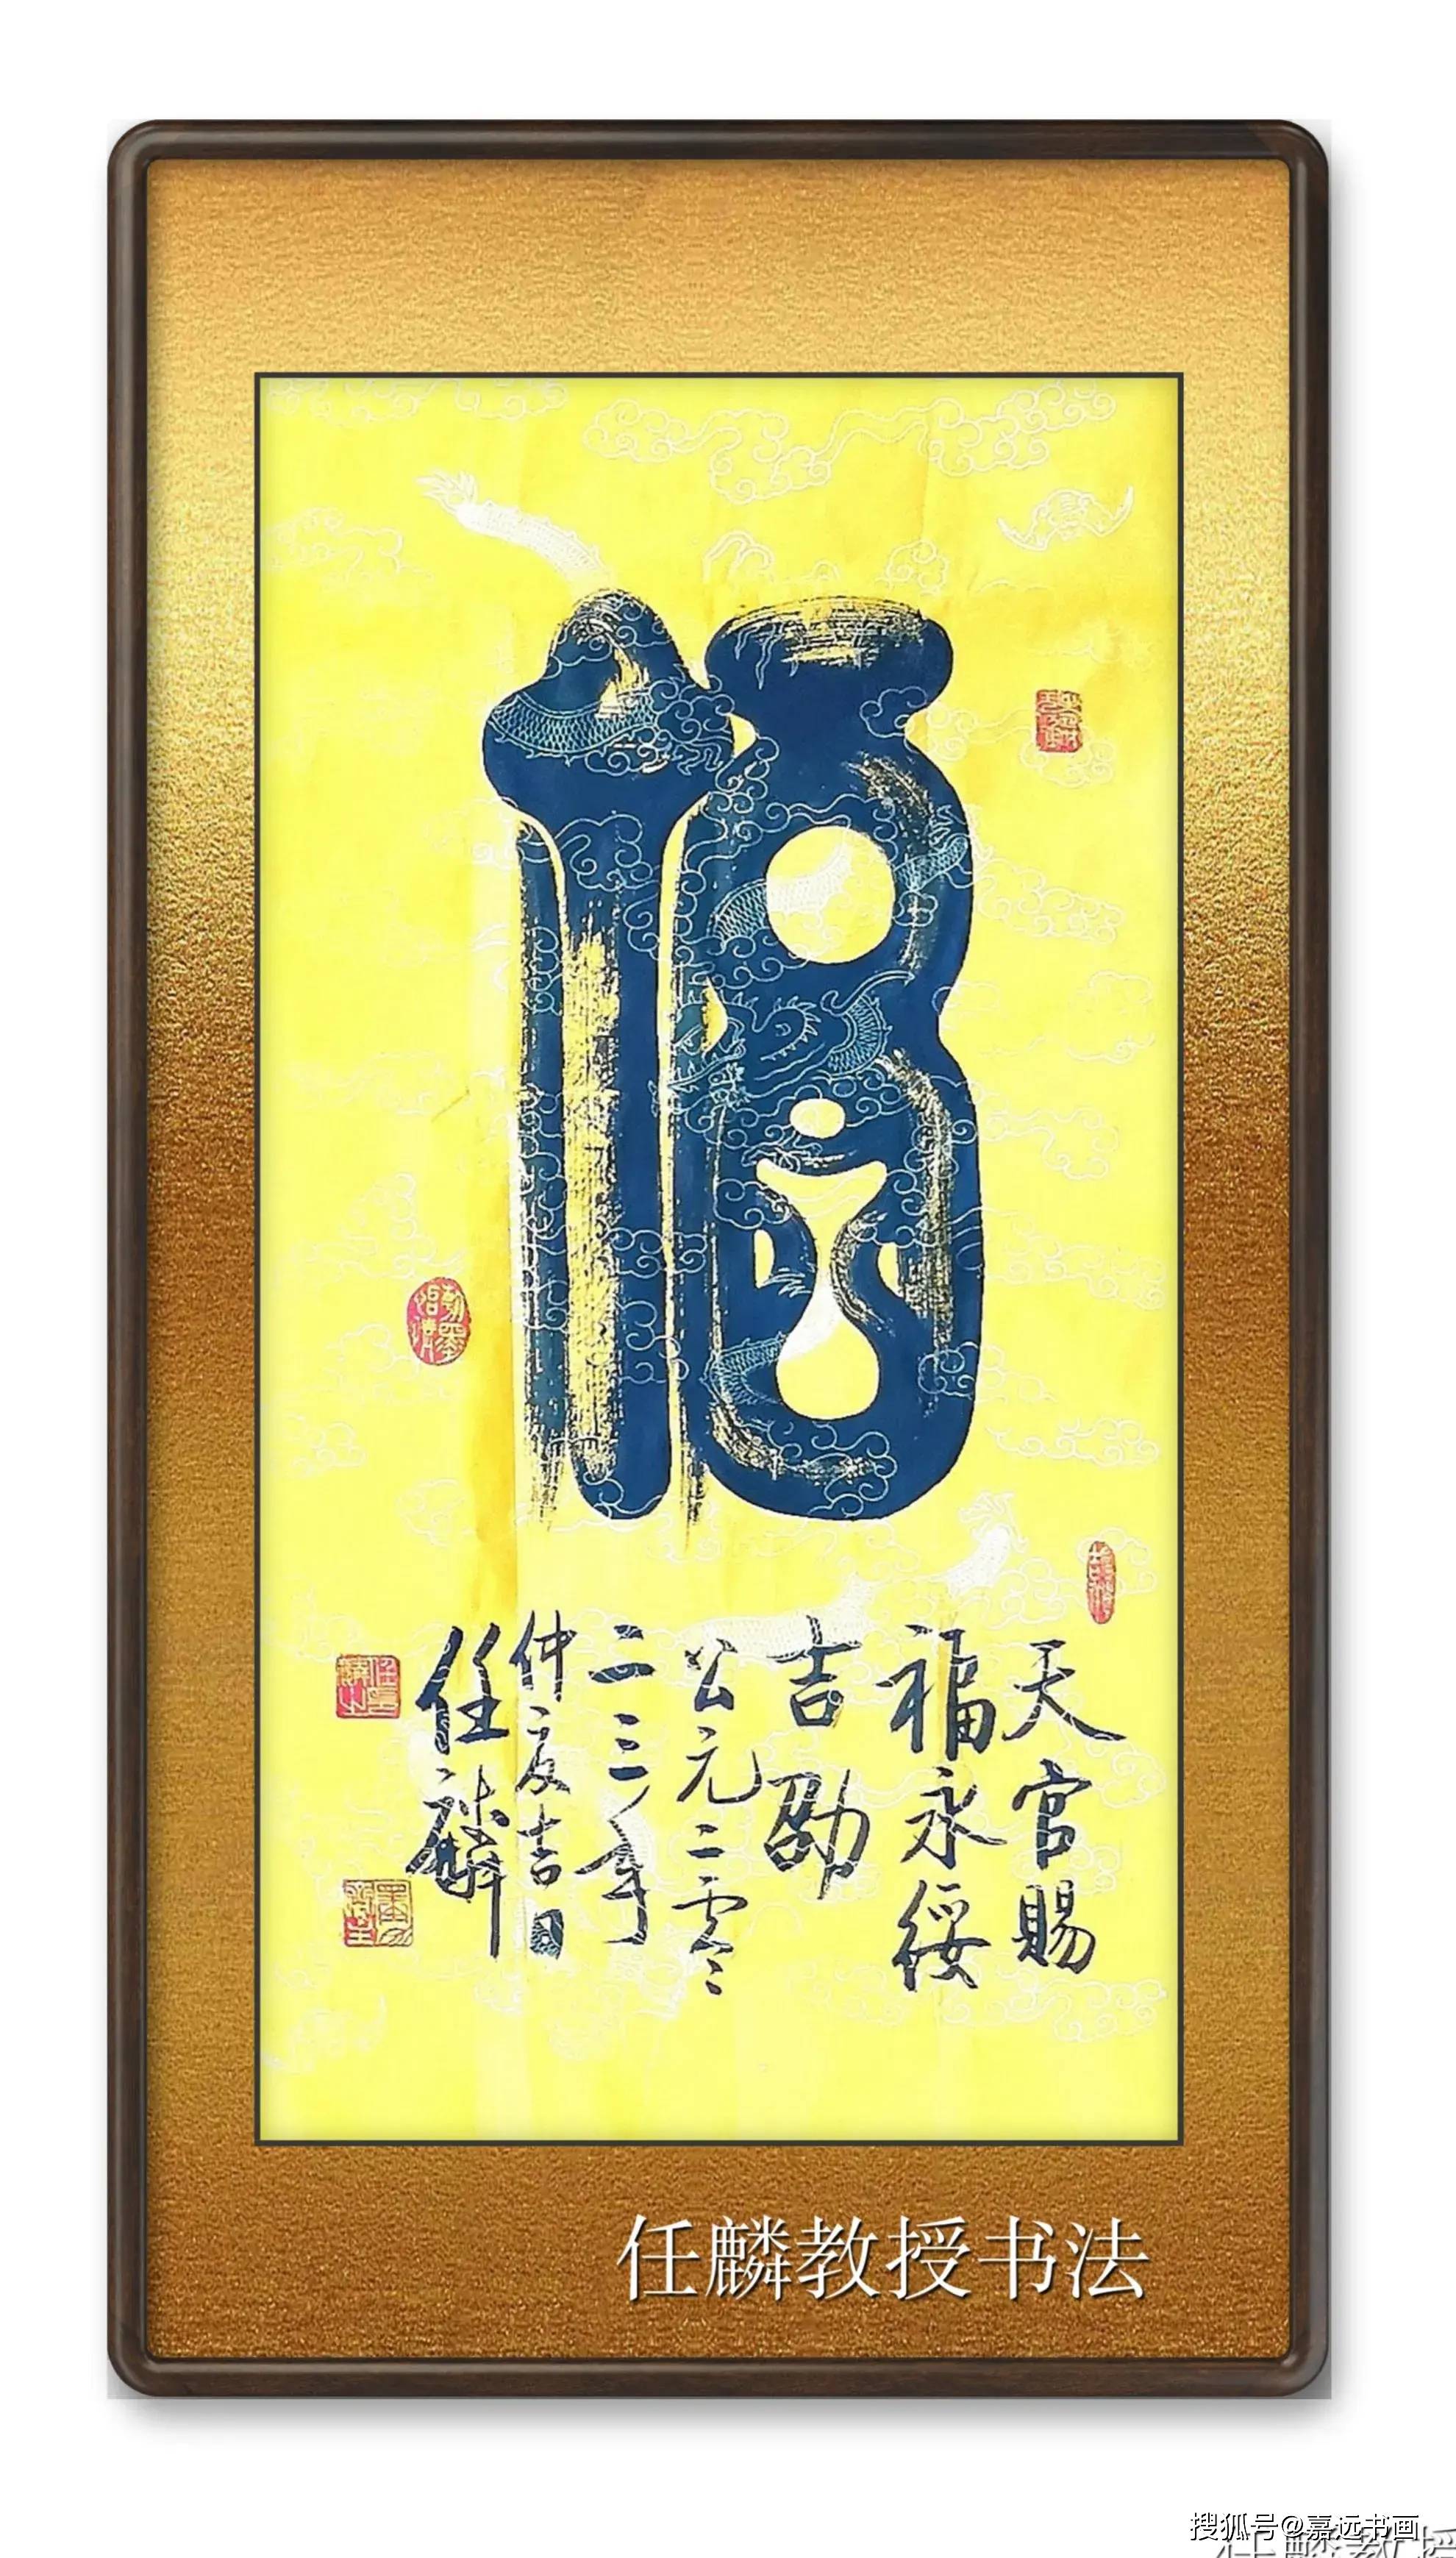 福
天官賜
福永綏
吉劭
公元二零
二三年
仲夏吉日
任麟
任麟教授书法
搜狐号@嘉远书画
任麟教授